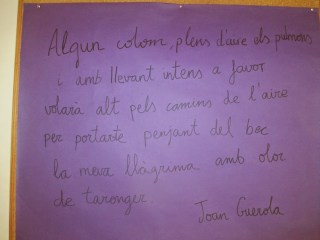 Algun colom, plens d'aire els pulmons
i amb llevant intens a favor
volarà alt pels camins de l'aire
per portarte penjant del bec
la meva llàgrima amb olor
de taronger
Joan Guerola